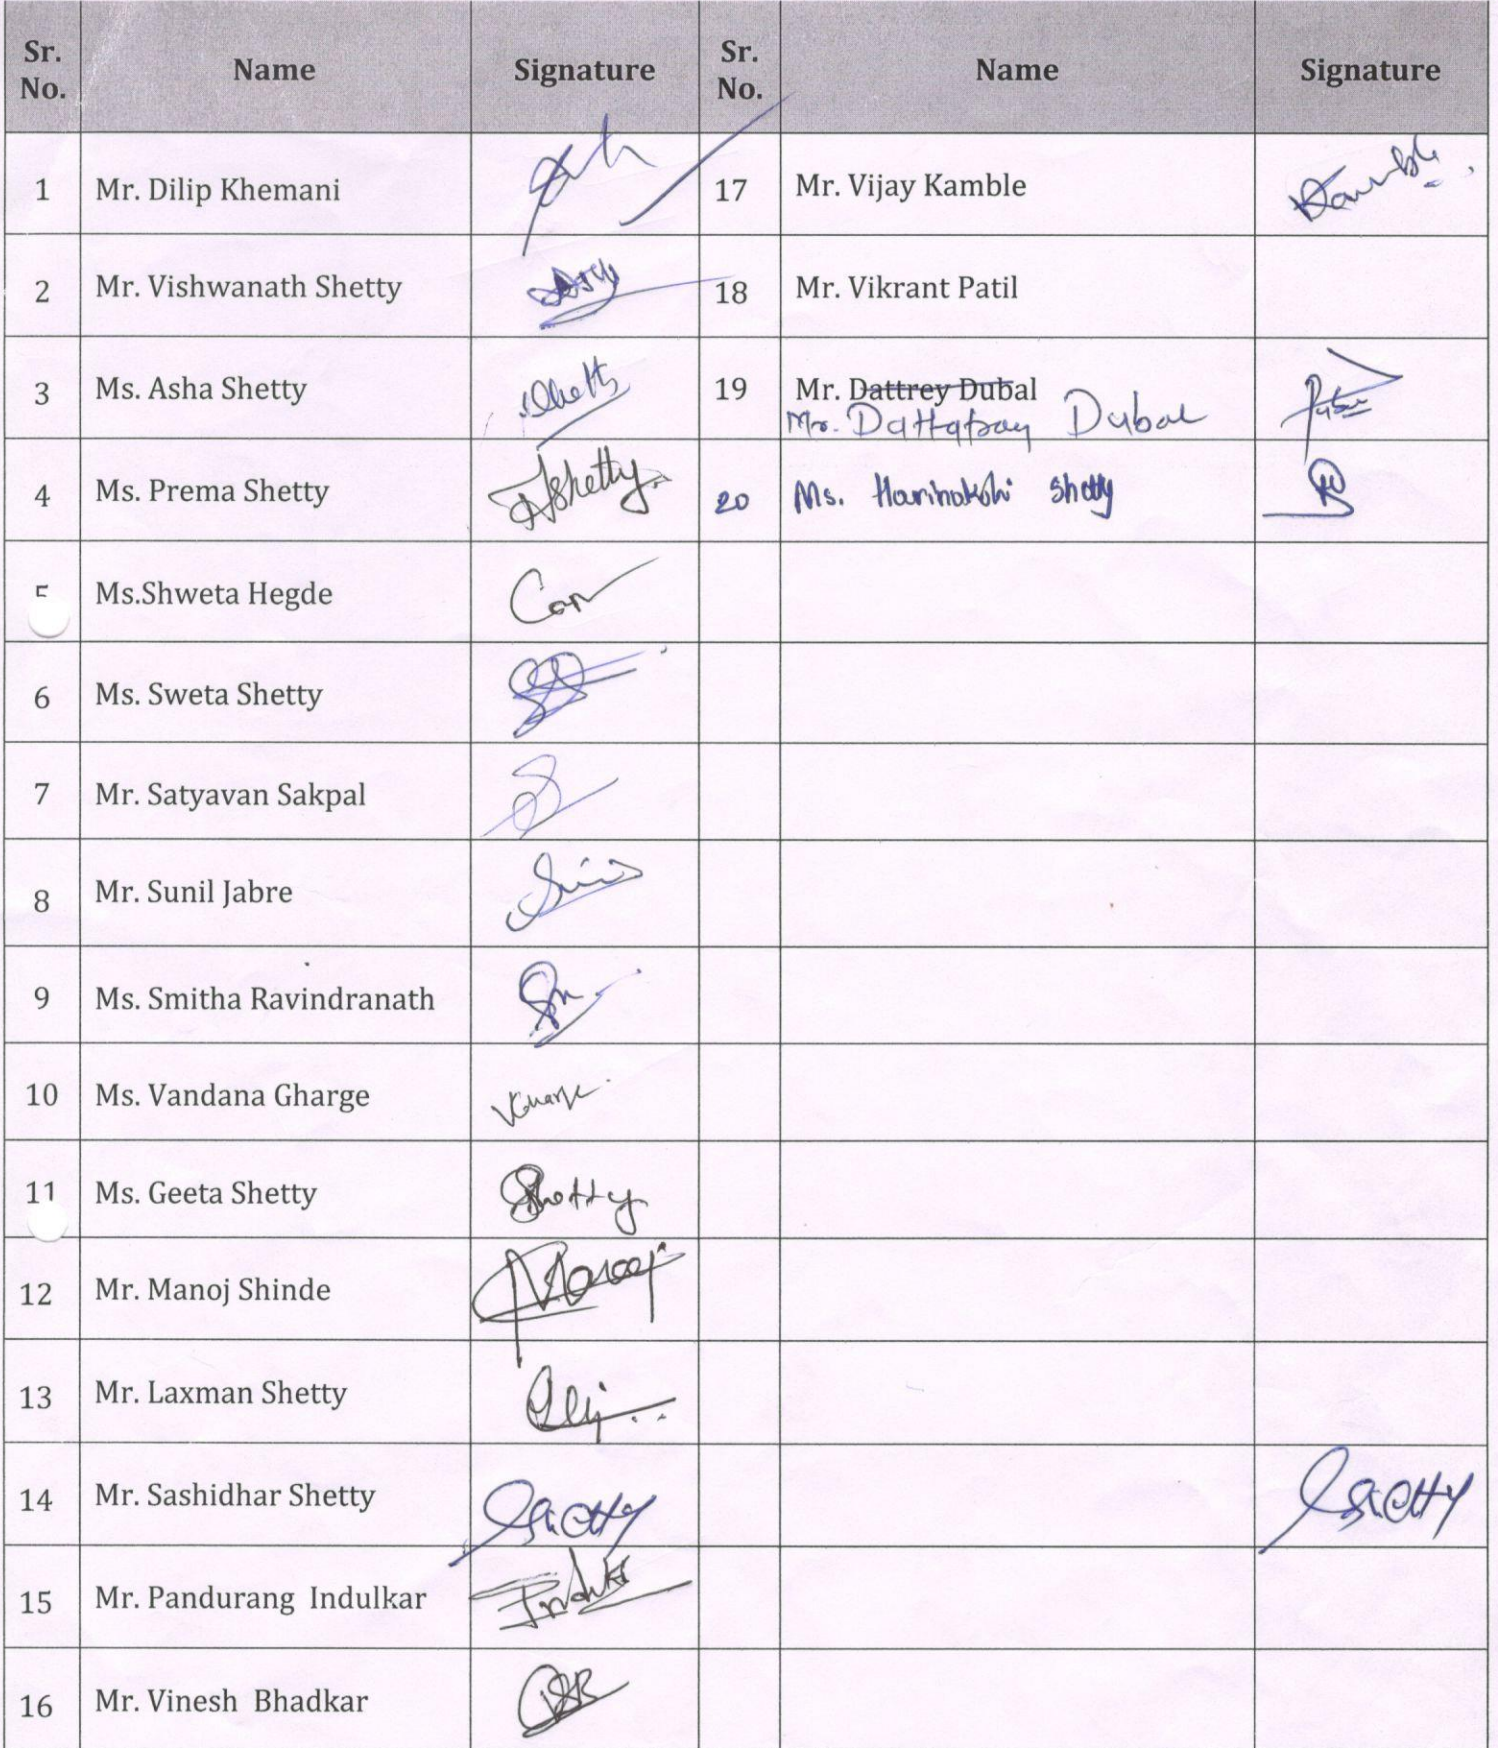 Sr. No. Name Signature Sr. No. Name Signature
1 Mr. Dilip Khemani 17 Mr. Vijay Kamble Kamble
2 Mr. Vishwanath Shetty 18 Mr. Vikrant Patil
3 Ms. Asha Shetty Shetty 19 Mr. Dattrey Dubal
Mr. Dattatray Dubal
4 Ms. Prema Shetty Shetty 20 Ms. Harinakshi Shetty
Ms.Shweta Hegde
6 Ms. Sweta Shetty
7 Mr. Satyavan Sakpal
8 Mr. Sunil Jabre
9 Ms. Smitha Ravindranath
10 Ms. Vandana Gharge VGharge
11 Ms. Geeta Shetty Shetty
12 Mr. Manoj Shinde Manoj
13 Mr. Laxman Shetty
14 Mr. Sashidhar Shetty Shetty Shetty
15 Mr. Pandurang Indulkar
16 Mr. Vinesh Bhadkar